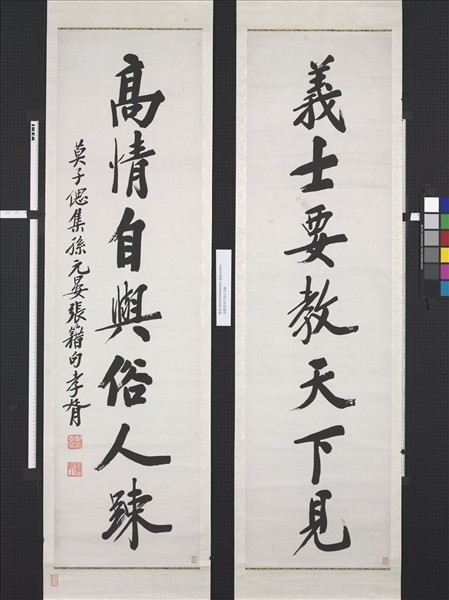 義士要教天下見
高情自與俗人踈
莫子偲集孫元晏張籍句孝胥